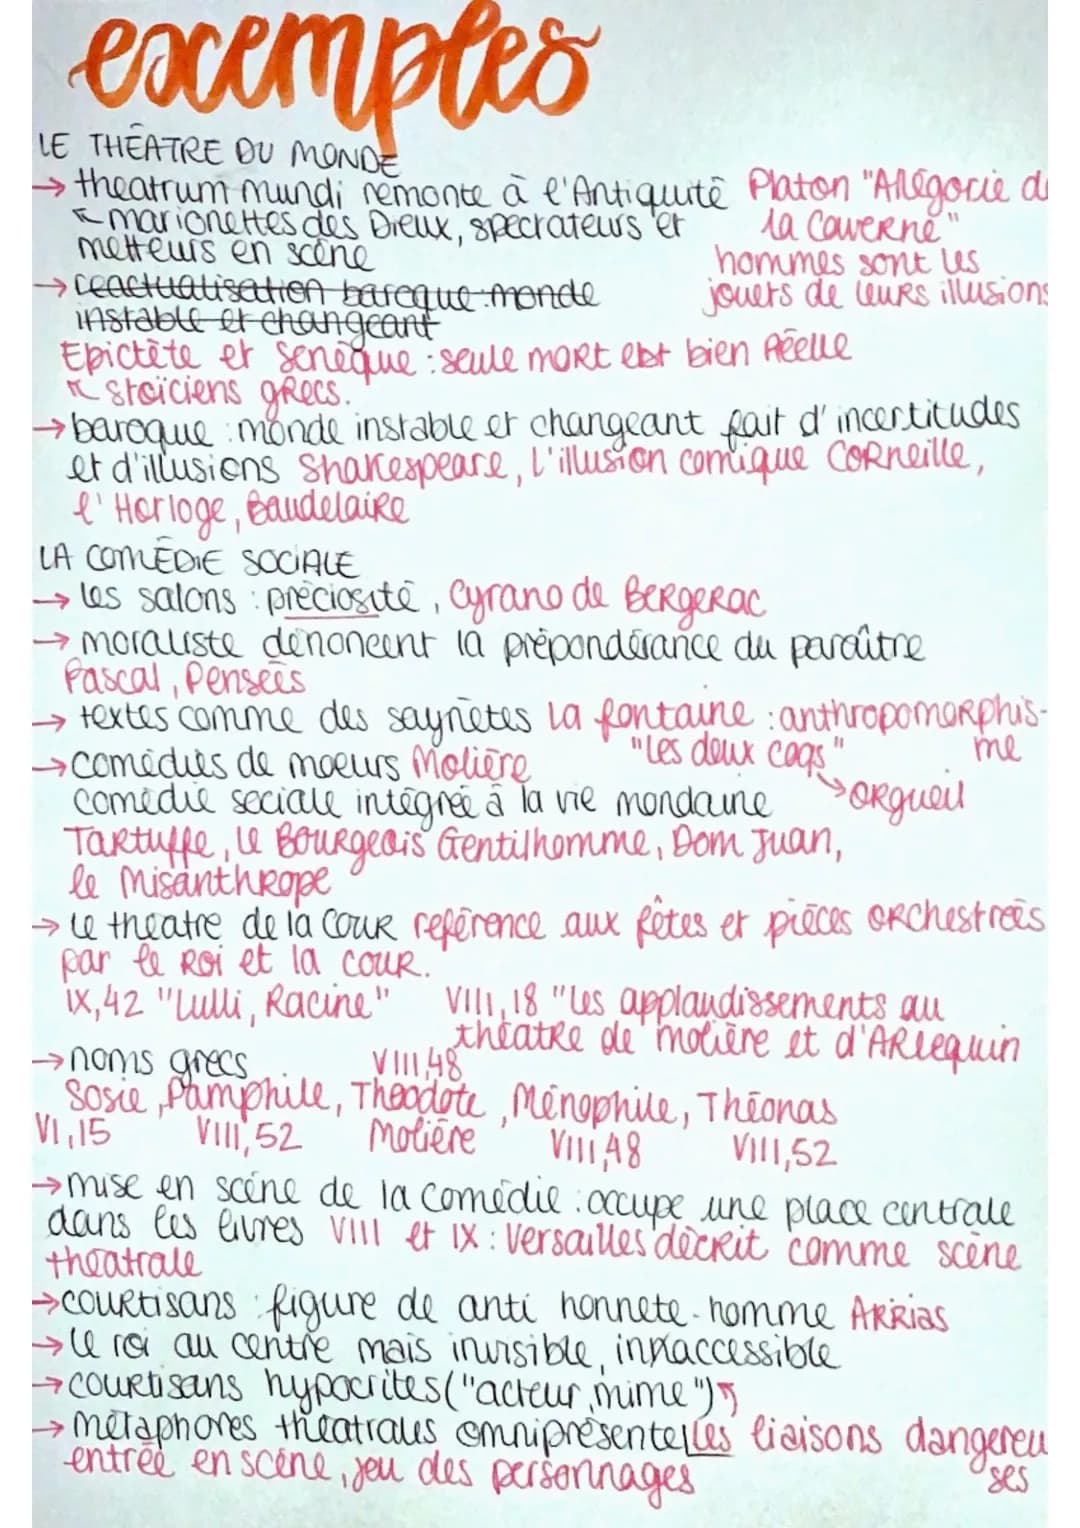 exemples
LE THÉATRE DU MONDE
→ theatrum mundi remonte à l'Antiquité Platon "Allégorie de
↖ marionettes des Dieux, spectateurs et la Caverne"
metteurs en scène hommes sont les
→ reactualisation baroque : monde jouets de leurs illusions
instable et changeant
Epictète et Senèque : seule mort est bien réelle
↖ stoïciens grecs.
→ baroque : monde instable et changeant fait d'incertitudes
et d'illusions Shakespeare, L'illusion comique Corneille,
l'Horloge, Baudelaire
LA COMÉDIE SOCIALE
→ les salons : préciosité, Cyrano de Bergerac
→ moraliste dénoncent la prépondérance du paraître
Pascal, Pensées
→ textes comme des saynètes La fontaine : anthropomorphis-
"les deux coqs" me
→ comédies de moeurs Molière
comédie sociale intégrée à la vie mondaine ↘ orgueil
Tartuffe, le Bourgeois Gentilhomme, Dom Juan,
le Misanthrope
→ le théatre de la cour reférence aux fêtes et pièces orchestrées
par le Roi et la cour.
IX,42 "Lulli, Racine" VIII,18 "les applaudissements au
théatre de molière et d'Arlequin
→ noms grecs VIII,48
Sosie, Pamphile, Theodote, Ménophile, Théonas
VI,15 VIII,52 Molière VIII,48 VIII,52
→ mise en scène de la comédie : occupe une place centrale
dans les livres VIII et IX : Versailles décrit comme scène
théatrale
→ courtisans : figure de anti honnete-homme Arrias
→ le roi au centre mais invisible, innaccessible
→ courtisans hypocrites ("acteur, mime")
→ métaphores théatrales omniprésente les liaisons dangereu
entrée en scène, jeu des personnages ses